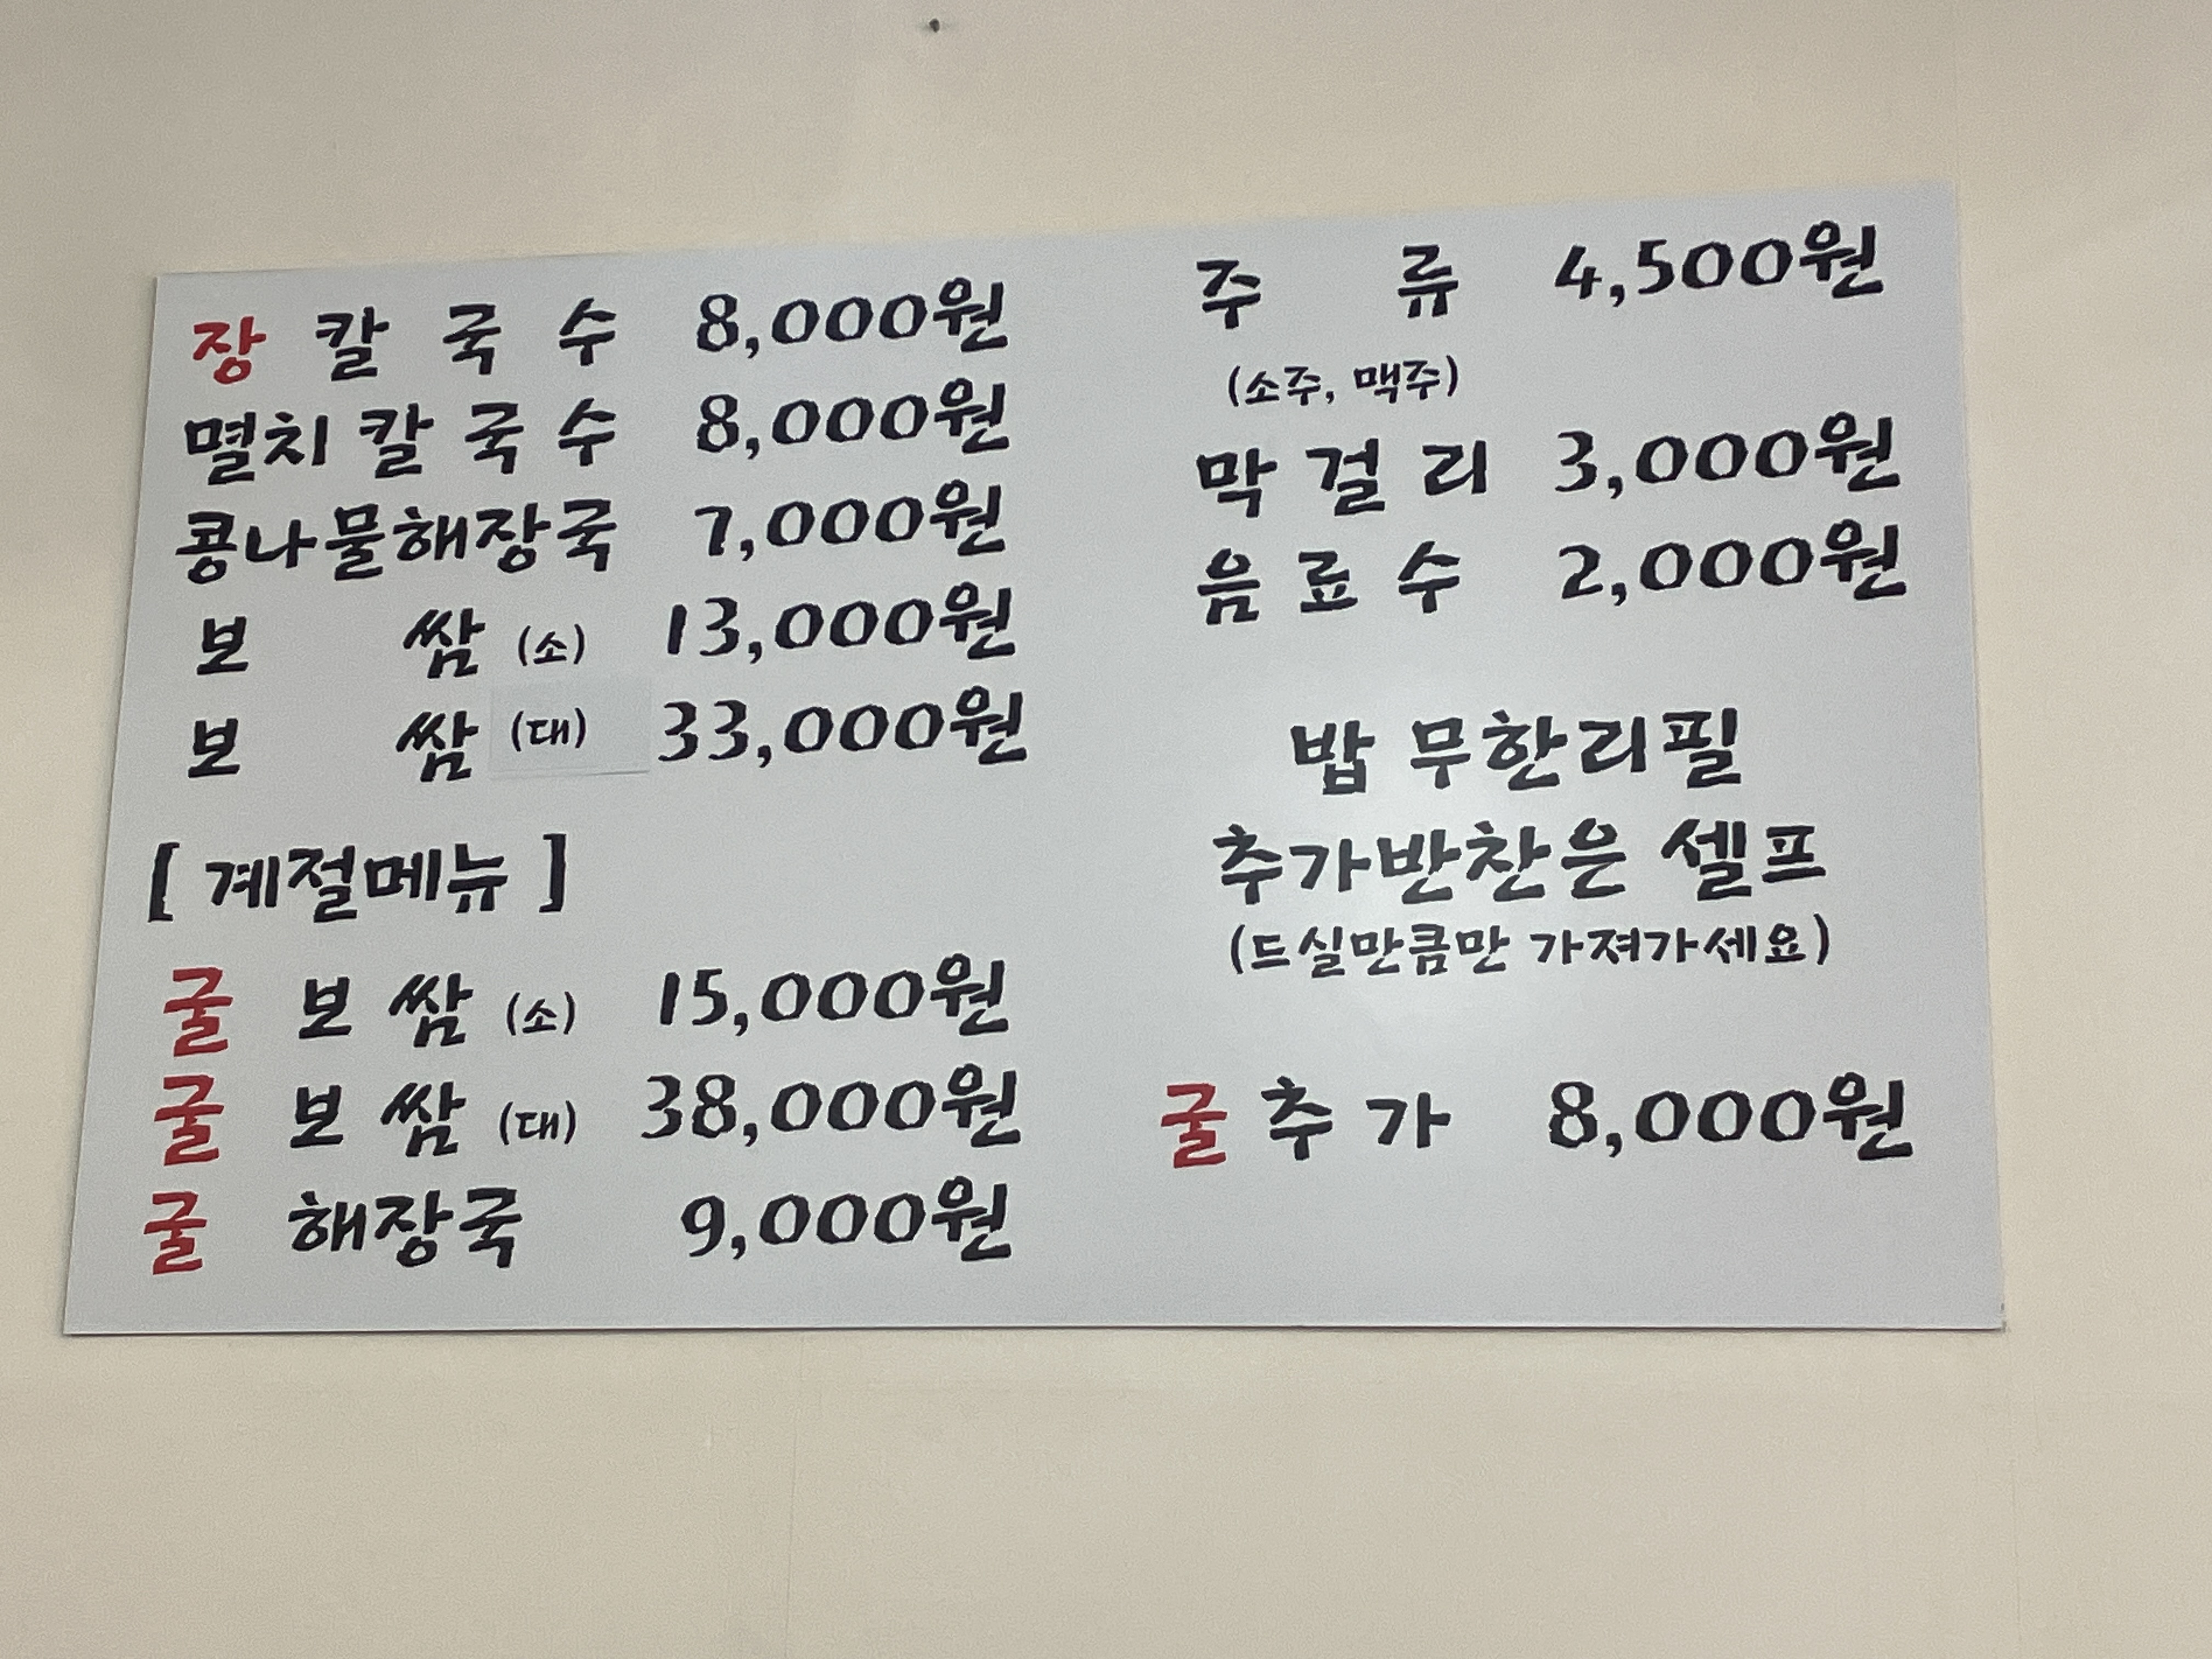 장 칼 국 수 8,000원
멸치 칼 국 수 8,000원
콩나물해장국 7,000원
보 쌈 (소) 13,000원
보 쌈 (대) 33,000원
[ 계절메뉴 ]
굴 보 쌈 (소) 15,000원
굴 보 쌈 (대) 38,000원
굴 해장국 9,000원
주 류 4,500원
(소주, 맥주)
막 걸 리 3,000원
음 료 수 2,000원
밥 무한리필
추가반찬은 셀프
(드실만큼만 가져가세요)
굴 추 가 8,000원